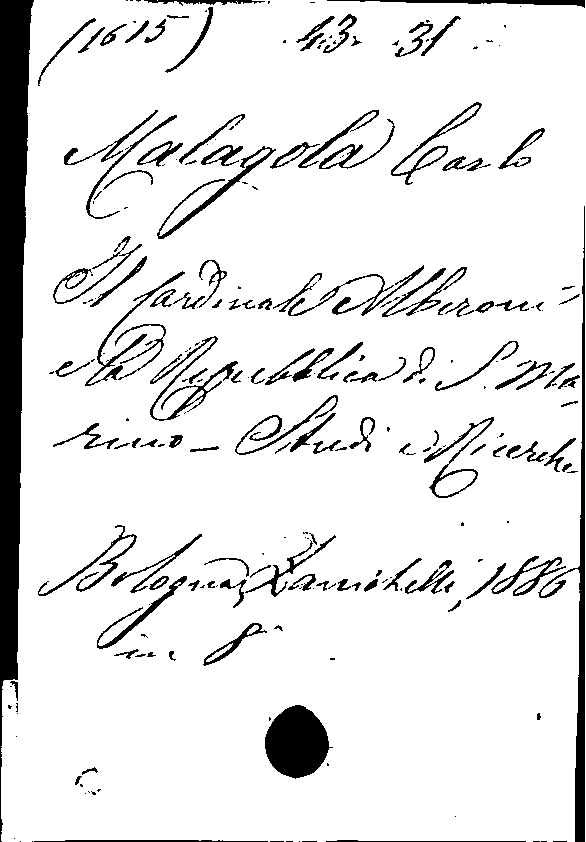 (1615) 43 31
Malagola Carlo
Il Cardinale Alberoni
e la Repubblica di S. Ma-
rino - Studi e Ricerche
Bologna, Zanichelli, 1886
in 8°